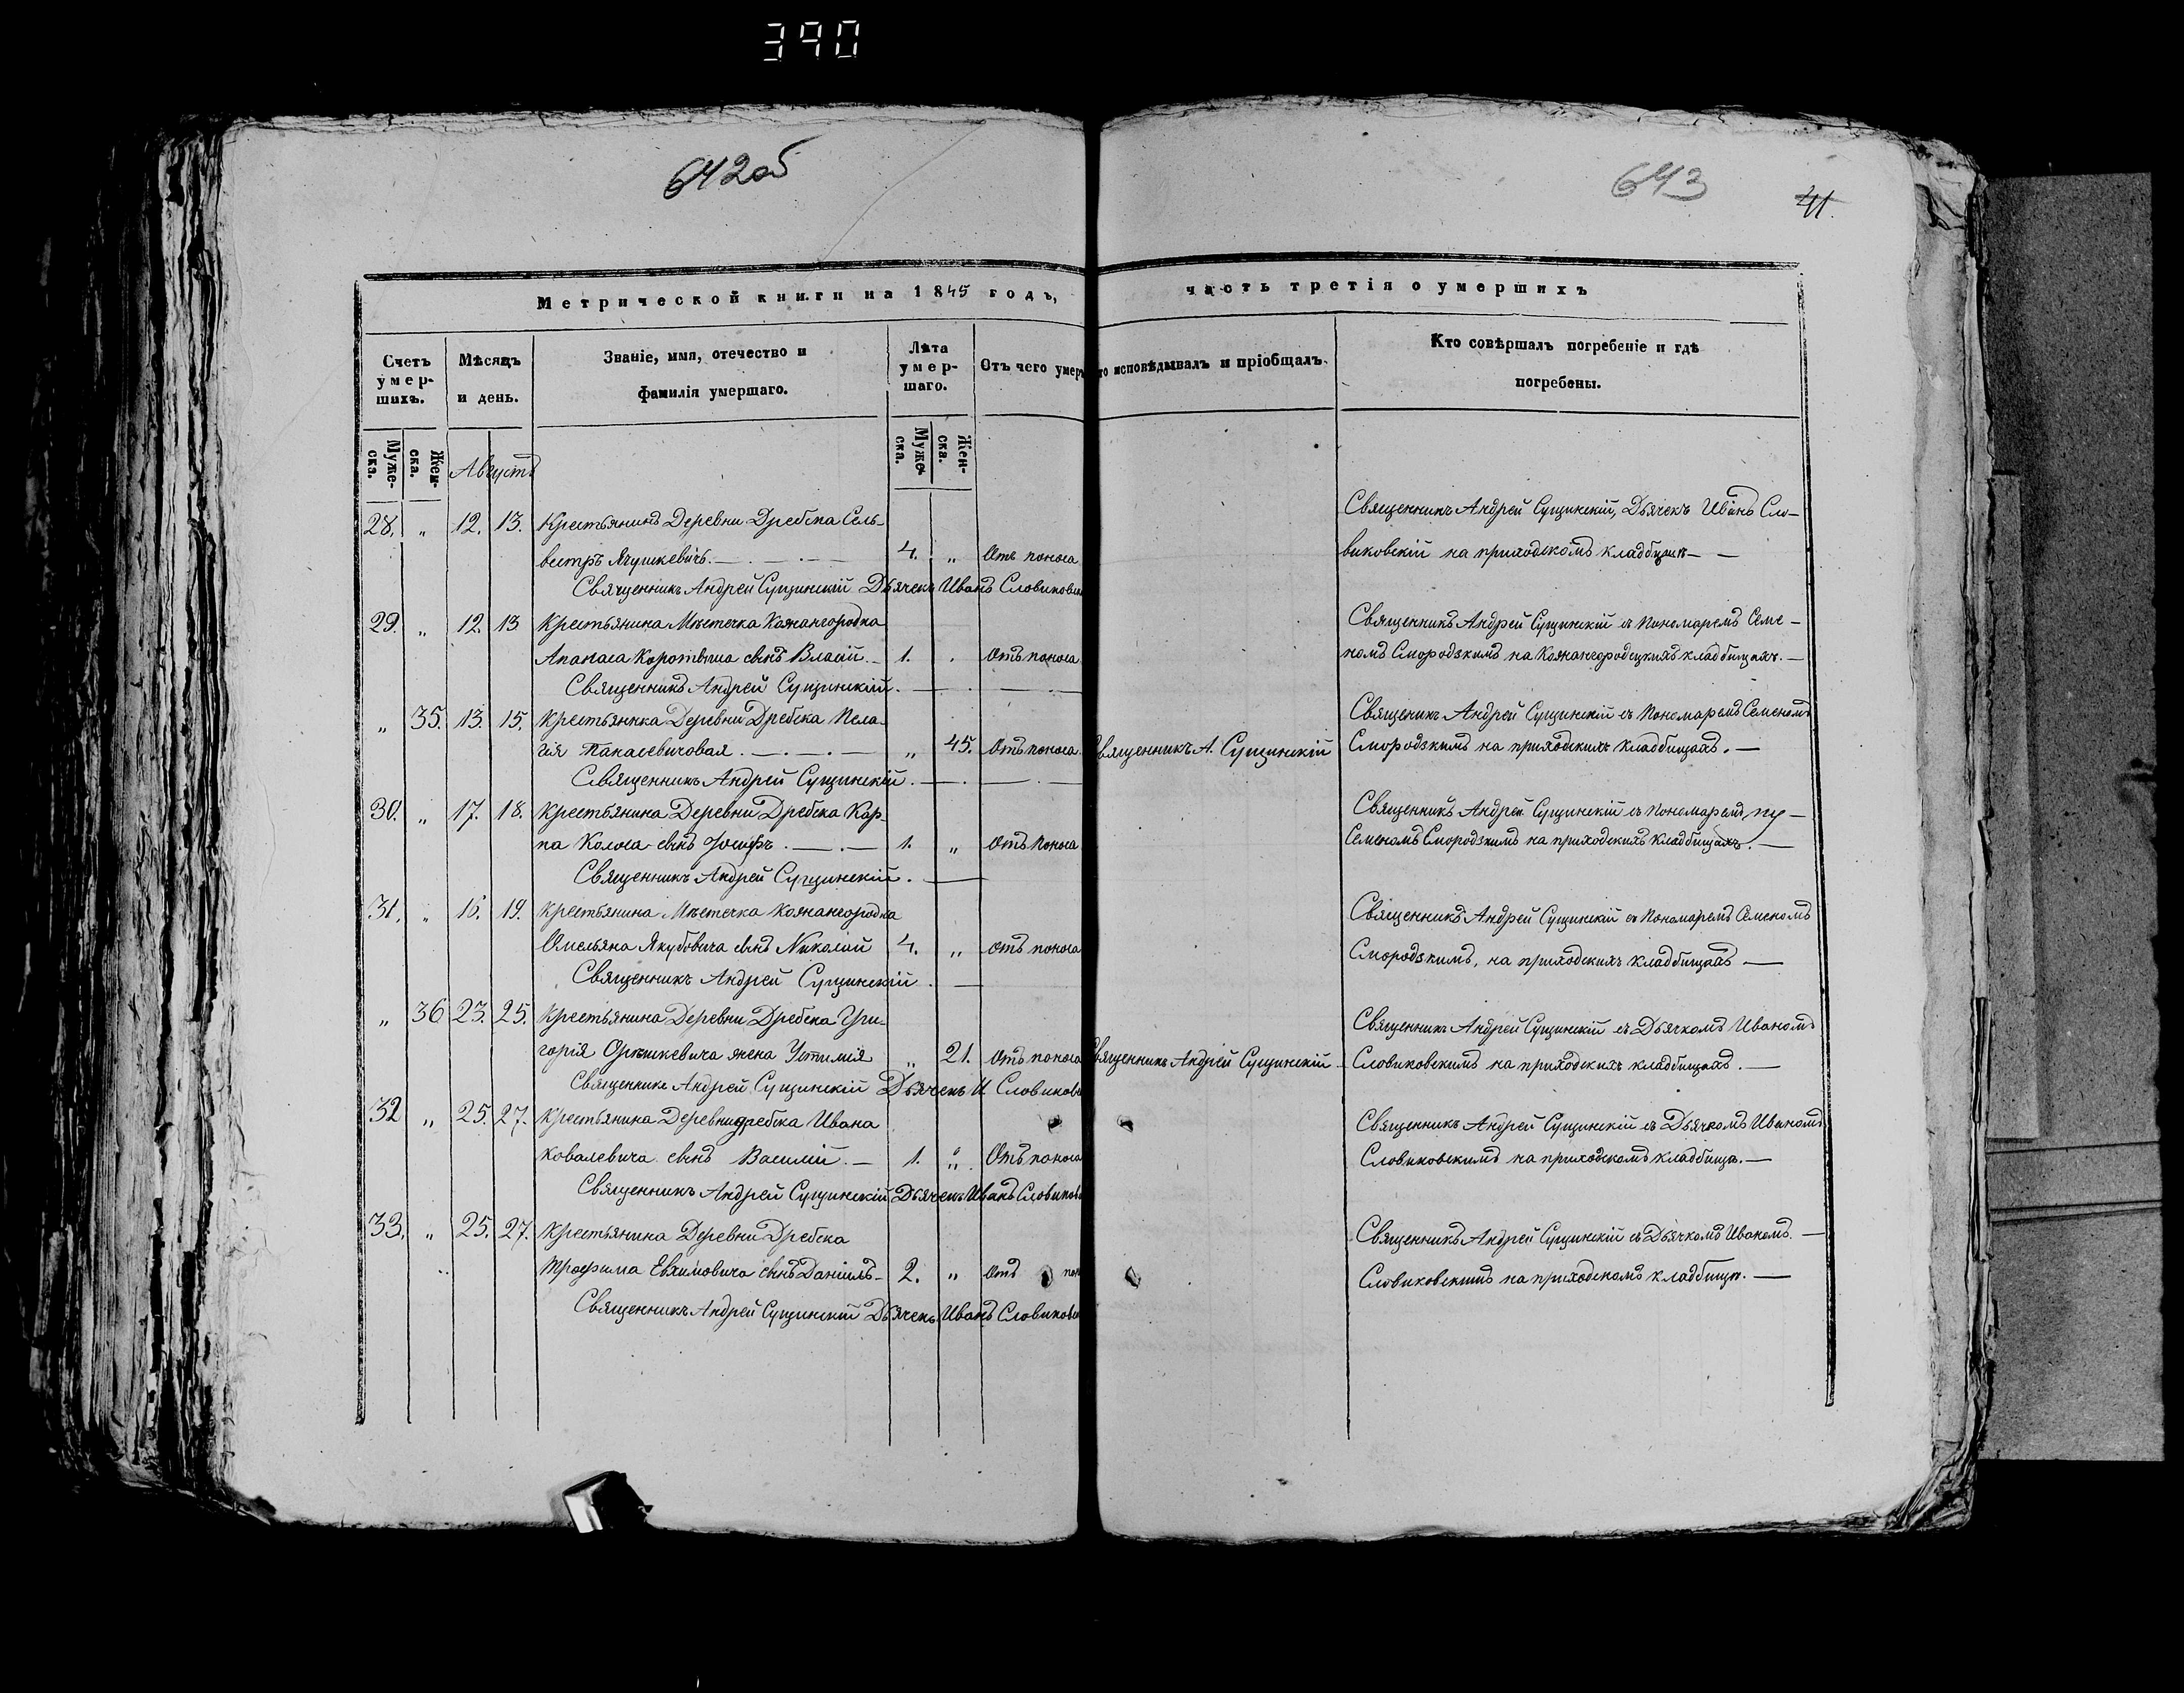 390
642об
643
41.
Метрической книги на 1845 годъ, часть третія о умершихъ
Счетъ умер-шихъ. Мѣсяцъ и день. Званіе, имя, отечество и фамилія умершаго. Лѣта умер-шаго. Отъ чего умер то исповѣдывалъ и пріобщалъ. Кто совѣршалъ погребеніе и гдѣ погребены.
Муже-ска. Жен-ска. Августъ Муже-ска. Жен-ска.
28. „ 12. 13. Крестьянинъ Деревни Дребска Сель- Священникъ Андрей Сущинскій, Дьячекъ Иванъ Сло-
вестръ Ячушкевичъ. — 4. „ Отъ поноса виковскій на приходскомъ кладбищѣ —
Священникъ Андрей Сущинскій Дьячекъ Иванъ Словиковск
29. „ 12. 13 Крестьянина Мѣстечка Кожангородка Священникъ Андрей Сущинскій съ Пономаремъ Семе-
Апанаса Коротыша сынъ Власій. — 1. . Отъ поноса номъ Смородзкимъ на Кожангородецкихъ кладбищахъ. —
Священникъ Андрей Сущинскій. —
„ 35. 13. 15. Крестьянка Деревни Дребска Пела- Священикъ Андрей Сущинскій съ Пономаремъ Семеномъ
гія Панасевичовая. — „ 45. Отъ поноса Священникъ А. Сущинскій Смородзкимъ на приходскихъ кладбищахъ. —
Священникъ Андрей Сущинскій. —
30. „ 17. 18. Крестьянина Деревни Дребска Кар- Священникъ Андрей Сущинскій съ Пономаремъ
па Колоса сынъ Іосифъ. — 1. „ Отъ поноса Семеномъ Смородзкимъ на приходскихъ кладбищахъ. —
Священникъ Андрей Сущинскій. —
31. „ 16. 19. Крестьянина Мѣстечка Кожангородка Священникъ Андрей Сущинскій съ Пономаремъ Семеномъ
Омельяна Якубовича сынъ Николай 4. „ отъ поноса Смородзкимъ, на приходскихъ кладбищахъ —
Священникъ Андрей Сущинскій. —
„ 36 23. 25. Крестьянина Деревни Дребска Гри- Священникъ Андрей Сущинскій съ Дьячкомъ Иваномъ
горія Орѣшкевича жена Устимія „ 21. отъ поноса Священникъ Андрей Сущинскій Словиковскимъ на приходскихъ кладбищахъ. —
Священникъ Андрей Сущинскій Дьячекъ И Словиковс
32 „ 25. 27. Крестьянина Деревни дребска Ивана Священникъ Андрей Сущинскій съ Дьячкомъ Иваномъ
Ковалевича сынъ Василій. — 1. „ Отъ поноса Словиковскимъ на приходскомъ кладбищѣ. —
Священникъ Андрей Сущинскій Дьячекъ Иванъ Словиковс
33. „ 25. 27. Крестьянина Деревни Дребска Священникъ Андрей Сущинскій съ Дьячкомъ Иваномъ. —
Трофима Евхимовича сынъ Даніилъ — 2. „ Отъ пон Словиковскимъ на приходскомъ кладбищѣ. —
Священникъ Андрей Сущинскій Дьячекъ Иванъ Словиковс